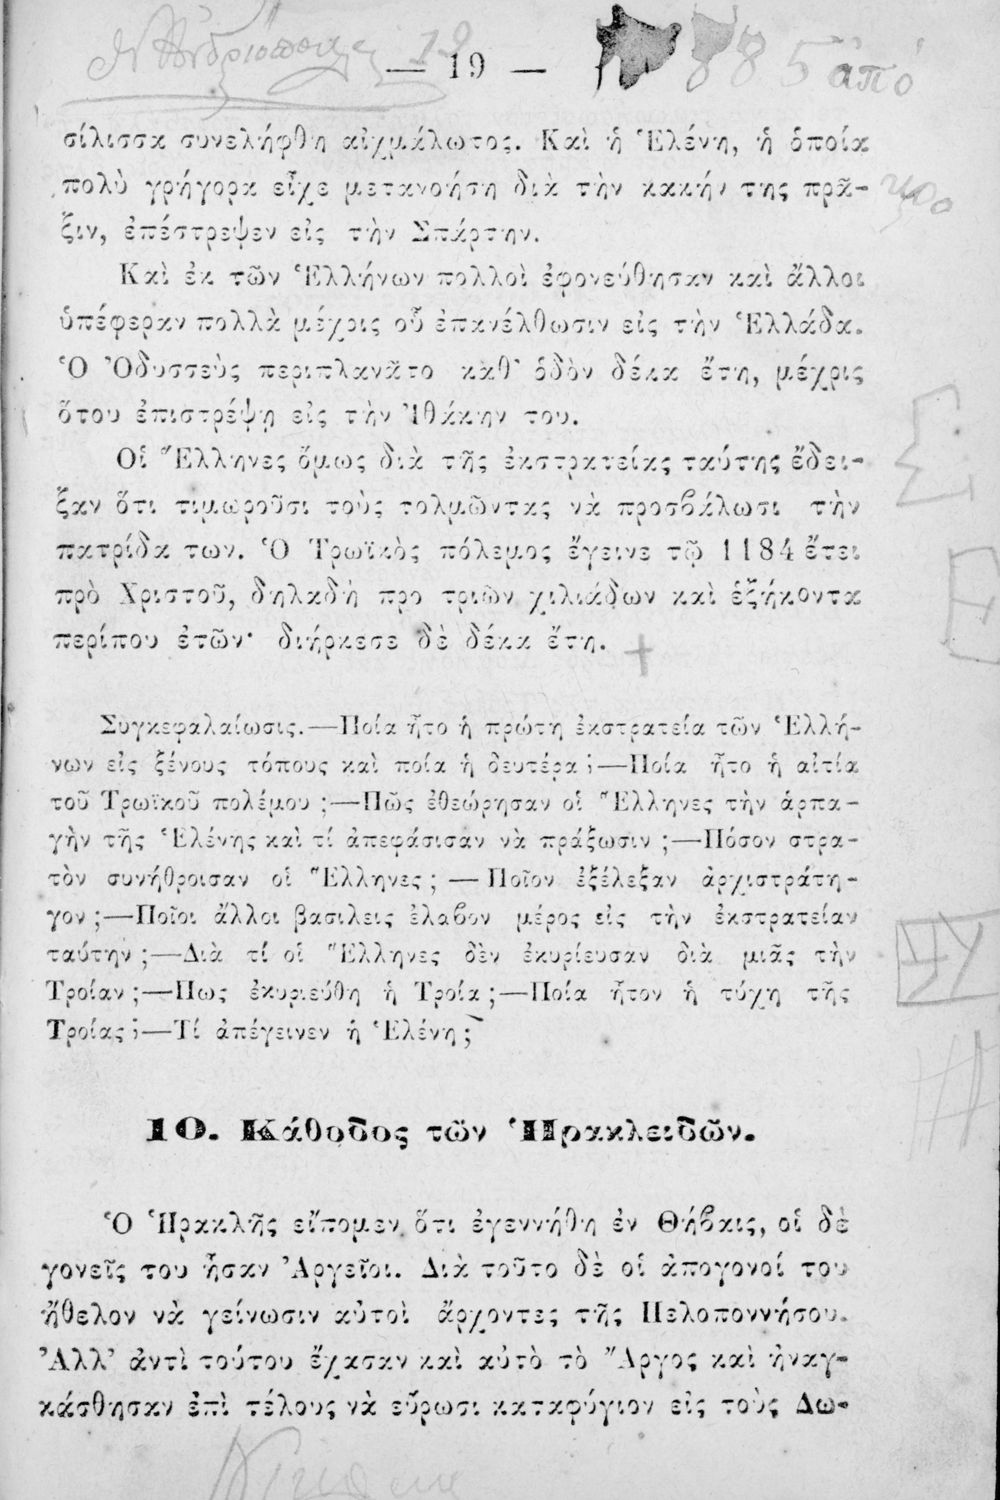 — 19 —
19
885 ἀπό
σίλισσα συνελήφθη αἰχμάλωτος. Καὶ ἡ Ἑλένη, ἡ ὁποία
πολὺ γρήγορα εἶχε μετανοήση διὰ τὴν κακήν της πρᾶ-
ξιν, ἐπέστρεψεν εἰς τὴν Σπάρτην.
Καὶ ἐκ τῶν Ἑλλήνων πολλοὶ ἐφονεύθησαν καὶ ἄλλοι
ὑπέφεραν πολλὰ μέχρις οὗ ἐπανέλθωσιν εἰς τὴν Ἑλλάδα.
Ὁ Ὀδυσσεὺς περιπλανᾶτο καθ' ὁδὸν δέκα ἔτη, μέχρις
ὅτου ἐπιστρέψῃ εἰς τὴν Ἰθάκην του.
Οἱ Ἕλληνες ὅμως διὰ τῆς ἐκστρατείας ταύτης ἔδει-
ξαν ὅτι τιμωροῦσι τοὺς τολμῶντας νὰ προσβάλωσι τὴν
πατρίδα των. Ὁ Τρωϊκὸς πόλεμος ἔγεινε τῷ 1184 ἔτει
πρὸ Χριστοῦ, δηλαδὴ προ τριῶν χιλιάδων καὶ ἑξήκοντα
περίπου ἐτῶν· διήρκεσε δὲ δέκα ἔτη.
Συγκεφαλαίωσις.—Ποία ἦτο ἡ πρώτη ἐκστρατεία τῶν Ἑλλή-
νων εἰς ξένους τόπους καὶ ποία ἡ δευτέρα ;—Ποία ἦτο ἡ αἰτία
τοῦ Τρωϊκοῦ πολέμου ;—Πῶς ἐθεώρησαν οἱ Ἕλληνες τὴν ἁρπα-
γὴν τῆς Ἑλένης καὶ τί ἀπεφάσισαν νὰ πράξωσιν ;—Πόσον στρα-
τὸν συνήθροισαν οἱ Ἕλληνες ; — Ποῖον ἐξέλεξαν ἀρχιστράτη-
γον ;—Ποῖοι ἄλλοι βασιλεις ἐλαβον μέρος εἰς τὴν ἐκστρατείαν
ταύτην ;—Διὰ τί οἱ Ἕλληνες δὲν ἐκυρίευσαν διὰ μιᾶς τὴν
Τροίαν ;—Πως ἐκυριεύθη ἡ Τροία ;—Ποία ἦτον ἡ τύχη τῆς
Τροίας ;—Τί ἀπέγεινεν ἡ Ἑλένη ;
10. Κάθοδος τῶν Ἡρακλειδῶν.
Ὁ Ἡρακλῆς εἴπομεν ὅτι ἐγεννήθη ἐν Θήβαις, οἱ δὲ
γονεῖς του ἦσαν Ἀργεῖοι. Διὰ τοῦτο δὲ οἱ ἀπογονοί του
ἤθελον νὰ γείνωσιν αὐτοὶ ἄρχοντες τῆς Πελοποννήσου.
Ἀλλ' ἀντὶ τούτου ἔχασαν καὶ αὐτὸ τὸ Ἄργος καὶ ἠναγ-
κάσθησαν ἐπὶ τέλους νὰ εὕρωσι καταφύγιον εἰς τοὺς Δω-